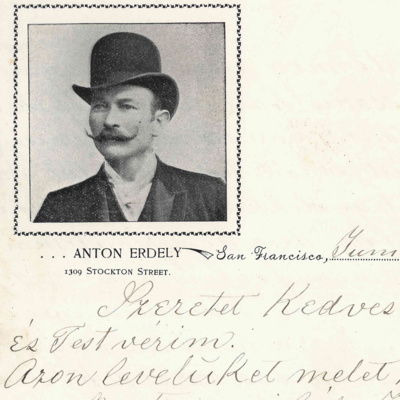 ... ANTON ERDELY San Francisco, Juni
1309 STOCKTON STREET.
Szeretet Kedves
és Test vérim.
Azon levelüket melet